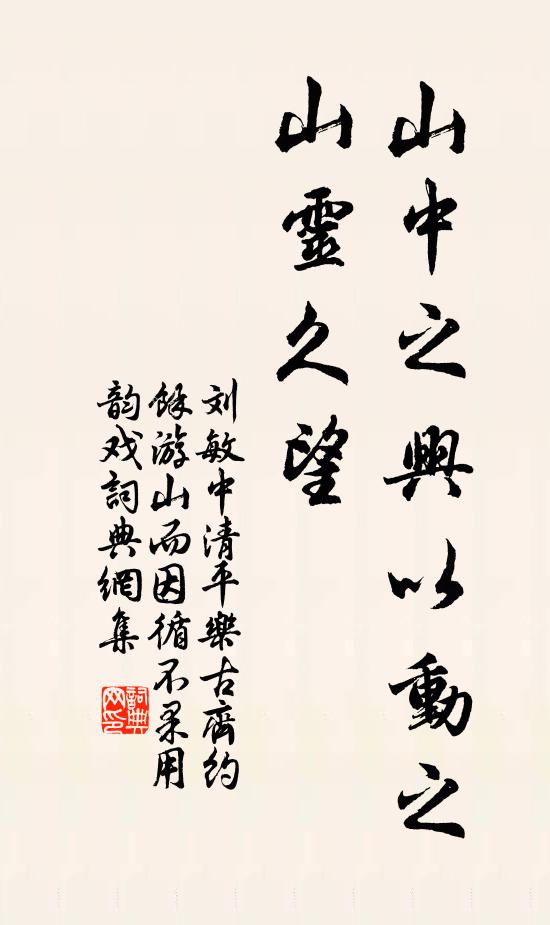 山中之興以動之
山靈久望
刘敏中清平樂古齊约
餘游山而因循不果用
韵戏詞典網集
詞典
网印